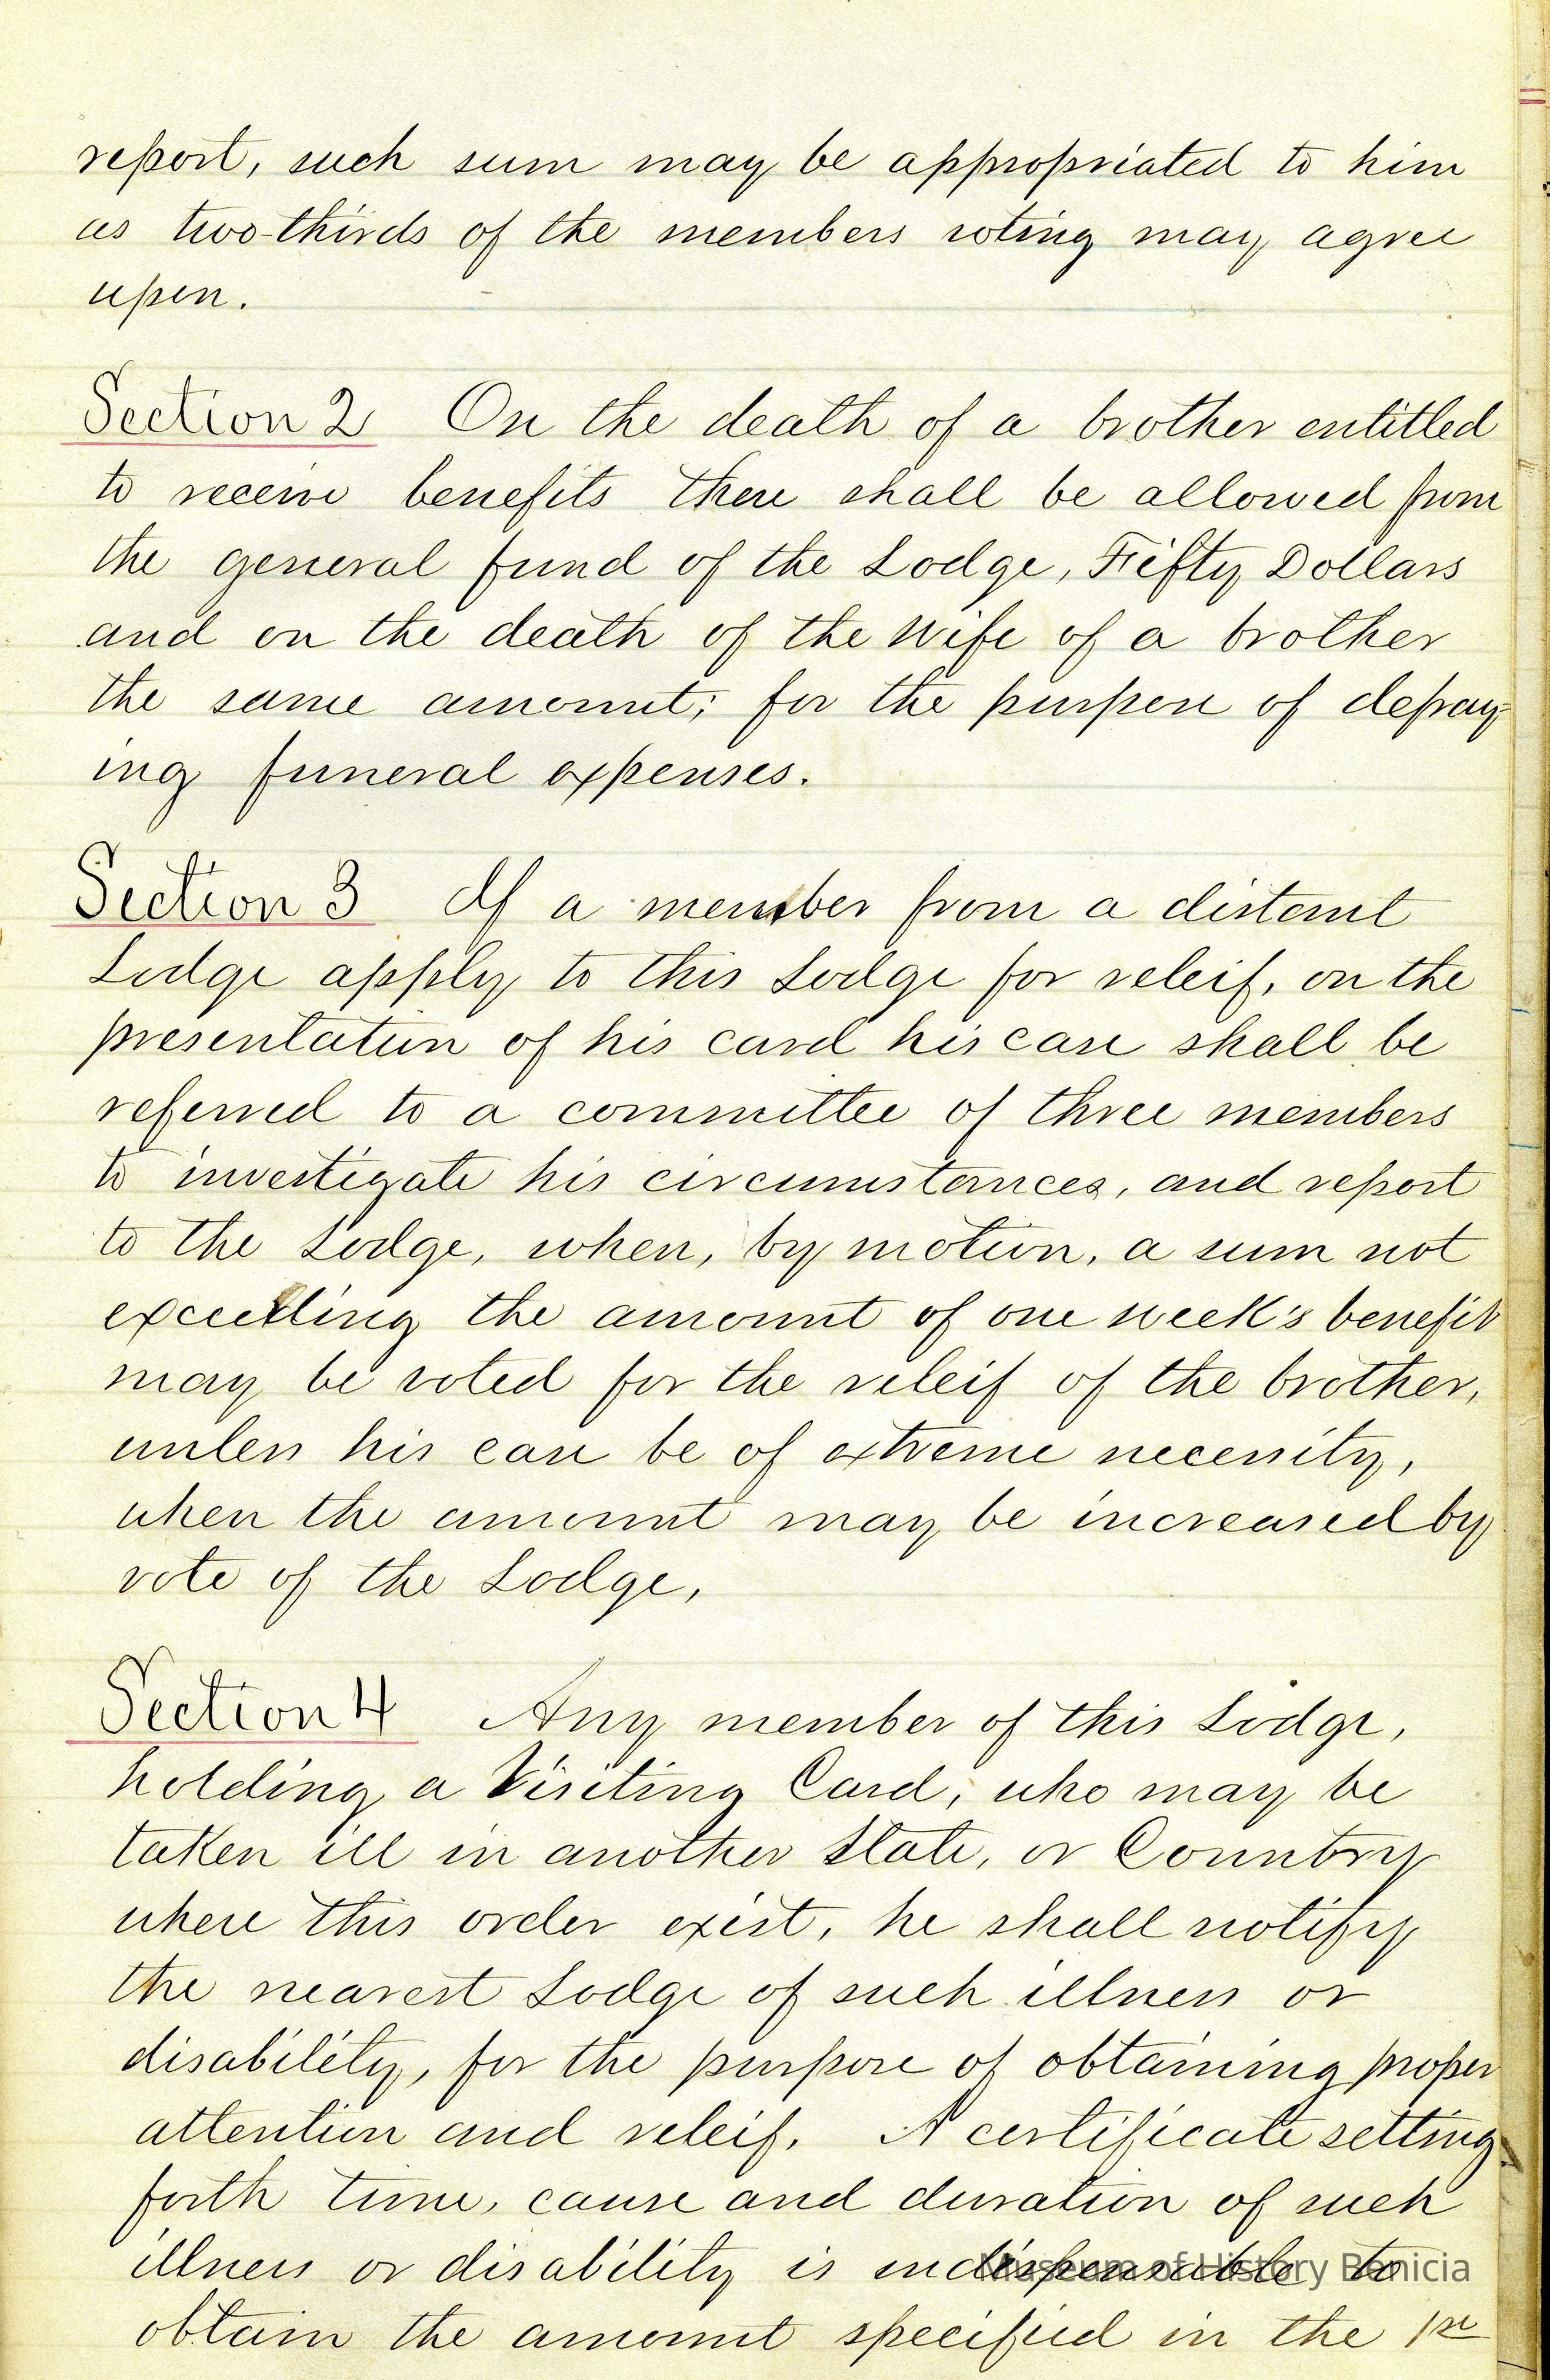 report, such sum may be appropriated to him
as two-thirds of the members voting may agree
upon.
Section 2 On the death of a brother entitled
to receive benefits there shall be allowed from
the general fund of the Lodge, Fifty Dollars
and on the death of the Wife of a brother
the same amount; for the purpose of defray-
ing funeral expenses.
Section 3 If a member from a distant
Lodge apply to this Lodge for releif, on the
presentation of his card his case shall be
referred to a committee of three members
to investigate his circumstances, and report
to the Lodge, when, by motion, a sum not
exceeding the amount of one week's benefit
may be voted for the releif of the brother,
unless his case be of extreme necessity,
when the amount may be increased by
vote of the Lodge,
Section 4 Any member of this Lodge,
holding a Visiting Card, who may be
taken ill in another State, or Country
where this order exist, he shall notify
the nearest Lodge of such illness or
disability, for the purpose of obtaining proper
attention and releif. A certificate setting
forth time, cause and duration of such
illness or disability is indispensible to
Museum of History Benicia
obtain the amount specified in the 1st